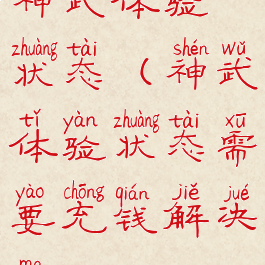 神武体验
zhuàng tài shén wǔ
状态（神武
tǐ yàn zhuàng tài xū
体验状态需
yào chōng qián jiě jué
要充钱解决